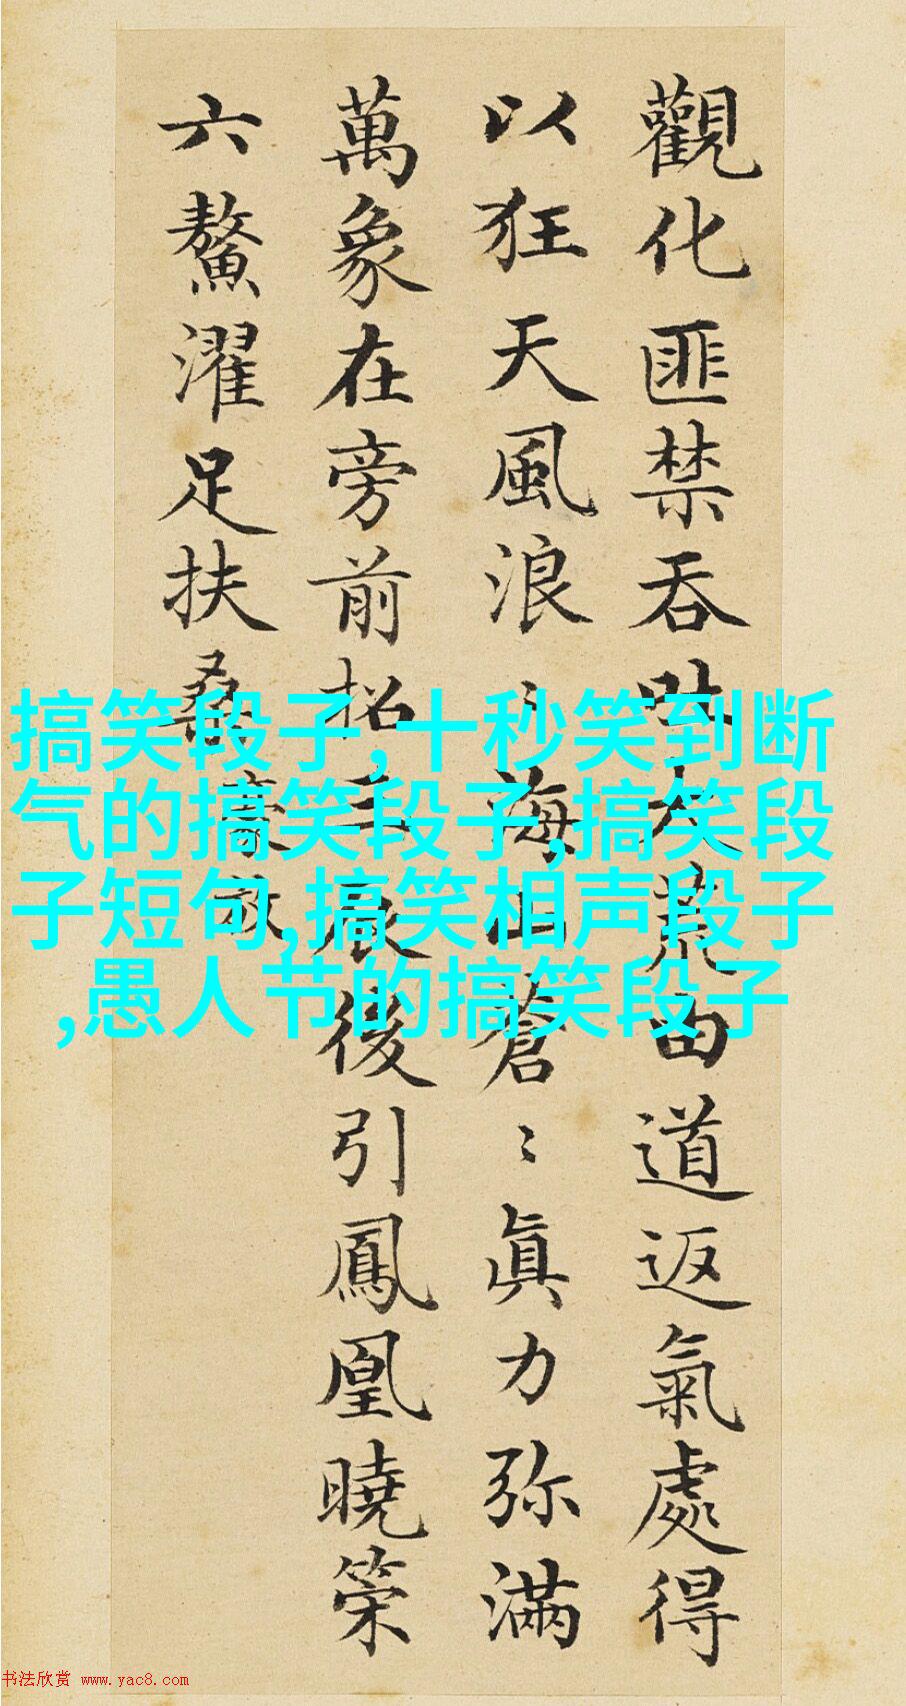 觀化匪禁吞吐大荒由道返氣處得
以狂天風浪〻海山蒼〻真力弥滿
萬象在旁前招三辰後引鳳凰曉策
六鰲濯足扶桑
豪放
搞笑段子,十秒笑到断
气的搞笑段子,搞笑段
子短句,搞笑相声段子
,愚人节的搞笑段子
书法欣赏 www.yac8.com